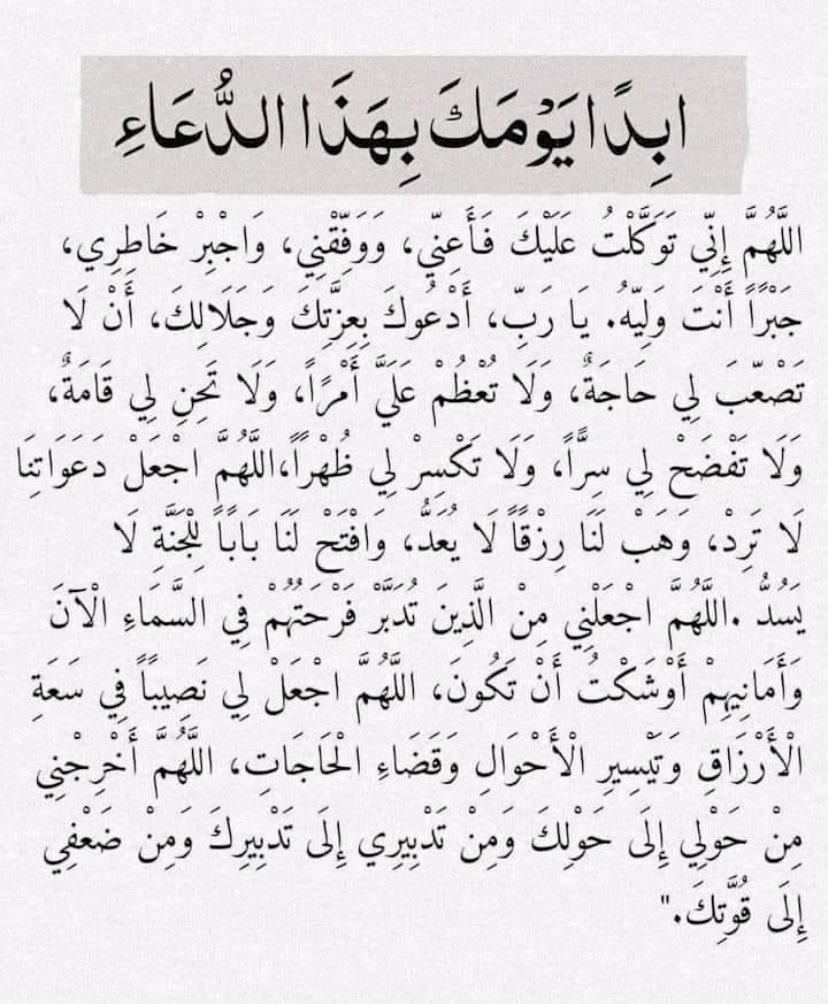 ابِدًا يَوْمَكَ بِهَذَا الدُّعَاءِ
اللَّهُمَّ إِنِّي تَوَكَّلْتُ عَلَيْكَ فَأَعِنِّي، وَوَفِّقْنِي، وَاجْبِرْ خَاطِرِي،
جَبْرًاً أَنْتَ وَلِيّهُ. يَا رَبِّ، أَدْعُوكَ بِعِزَّتِكَ وَجَلَالِكَ، أَنْ لَا
تَصْعّبَ لِي حَاجَةٌ، وَلَا تُعْظُمْ عَلَيَّ أَمْرًاً، وَلَا تَحِنِ لِي قَامَةٌ،
وَلَا تَفْضَحْ لِي سِرًّاً، وَلَا تَكْسِرْ لِي ظُهْراًً،اللَّهُمَّ اجْعَلْ دَعَوَاتِنَا
لَا تَرِدْ، وَهَبْ لَنَا رِزْقًاً لَا يُعَدُّ، وَافْتَحْ لَنَا بَابًاً لِلْجَنَّةِ لَا
يَسُدُّ .اللَّهُمَّ اجْعَلْنِي مِنْ الَّذِينَ تُدَبَّرْ فَرْحَتُهُمْ فِي السَّمَاءِ الْآنَ
وَأَمَانِيهِمْ أَوْشَكْتُ أَنْ تَكُونَ، اللَّهُمَّ اجْعَلْ لِي نَصِيباًً فِي سَعَةِ
الْأَرْزَاقِ وَتَيْسِيرِ الْأَحْوَالِ وَقَضَاءِ الْحَاجَاتِ، اللَّهُمَّ أَخْرِجْنِي
مِنْ حَوْلِي إِلَى حَوْلِكَ وَمِنْ تَدْبِيرِي إِلَى تَدْبِيرِكَ وَمِنْ ضَعْفِي
إِلَى قُوَّتِكَ."